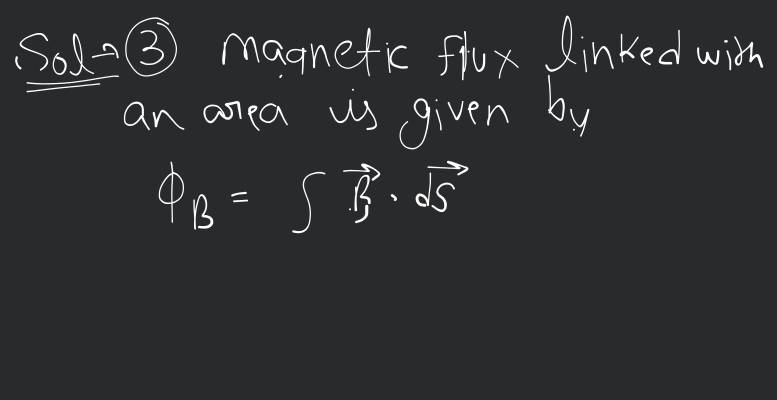 Sol→③ magnetic flux linked with
an area is given by
ϕ_B = ∫ B⃗ · dS⃗